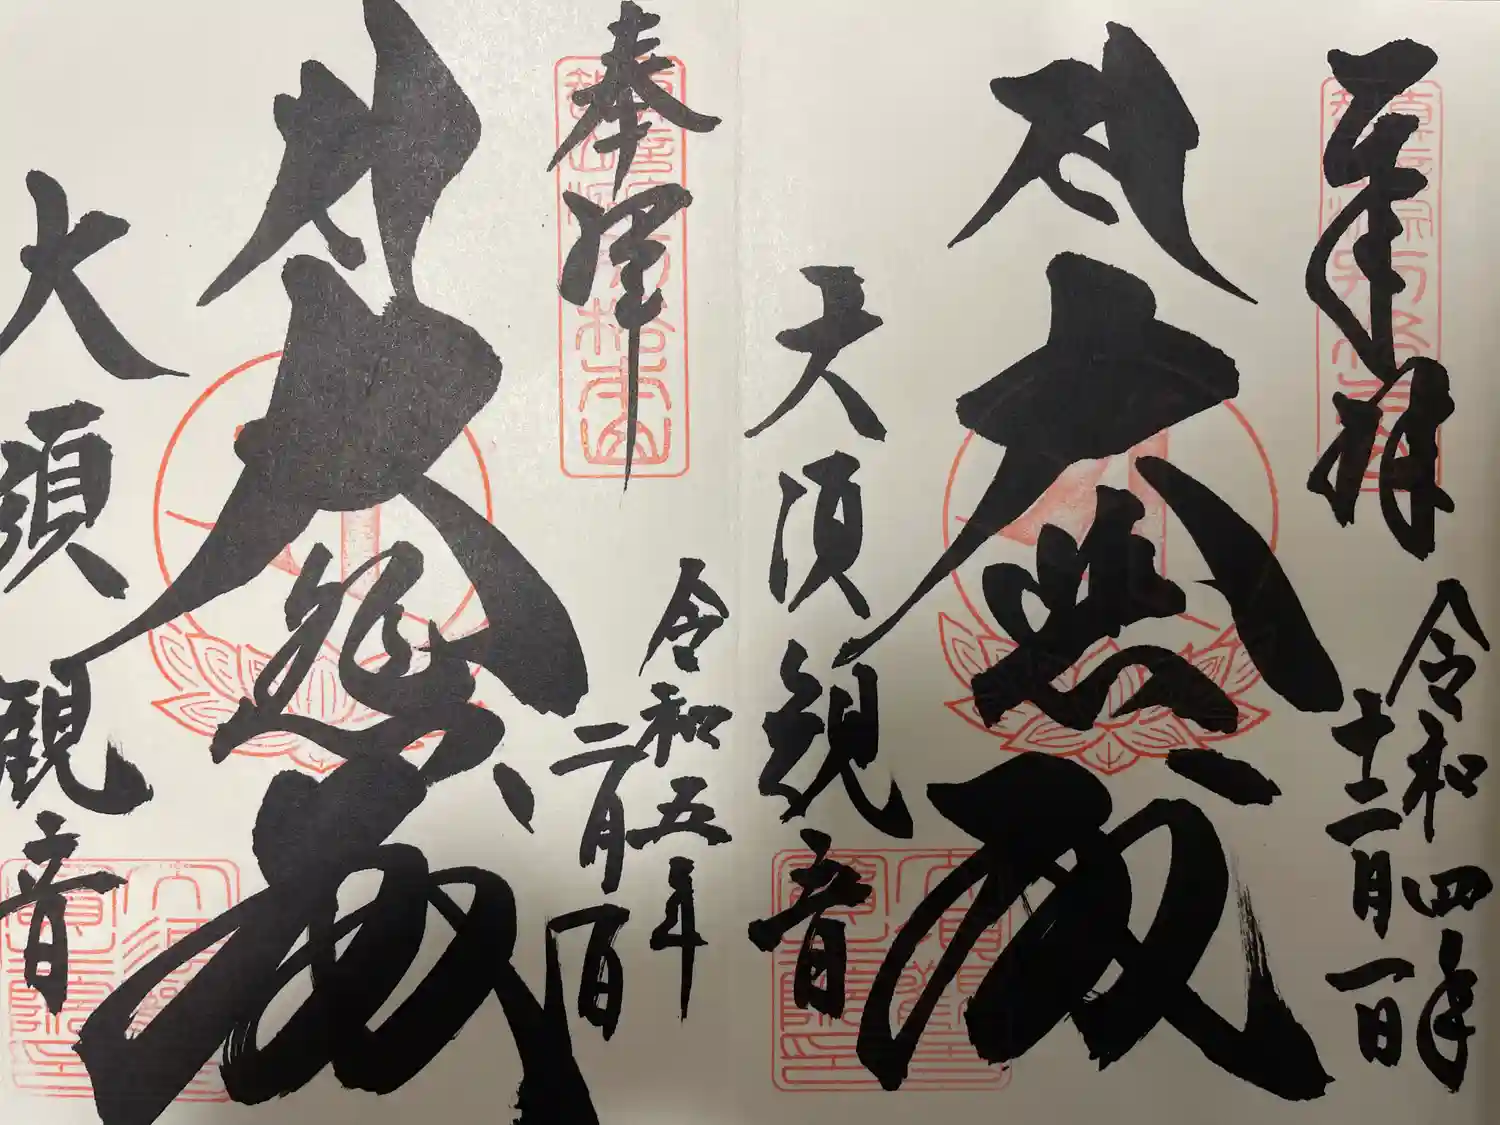 奉拝
令和四年
十二月一日
大悲殿
大須観音
奉拝
令和五年
二月一日
大悲殿
大須観音